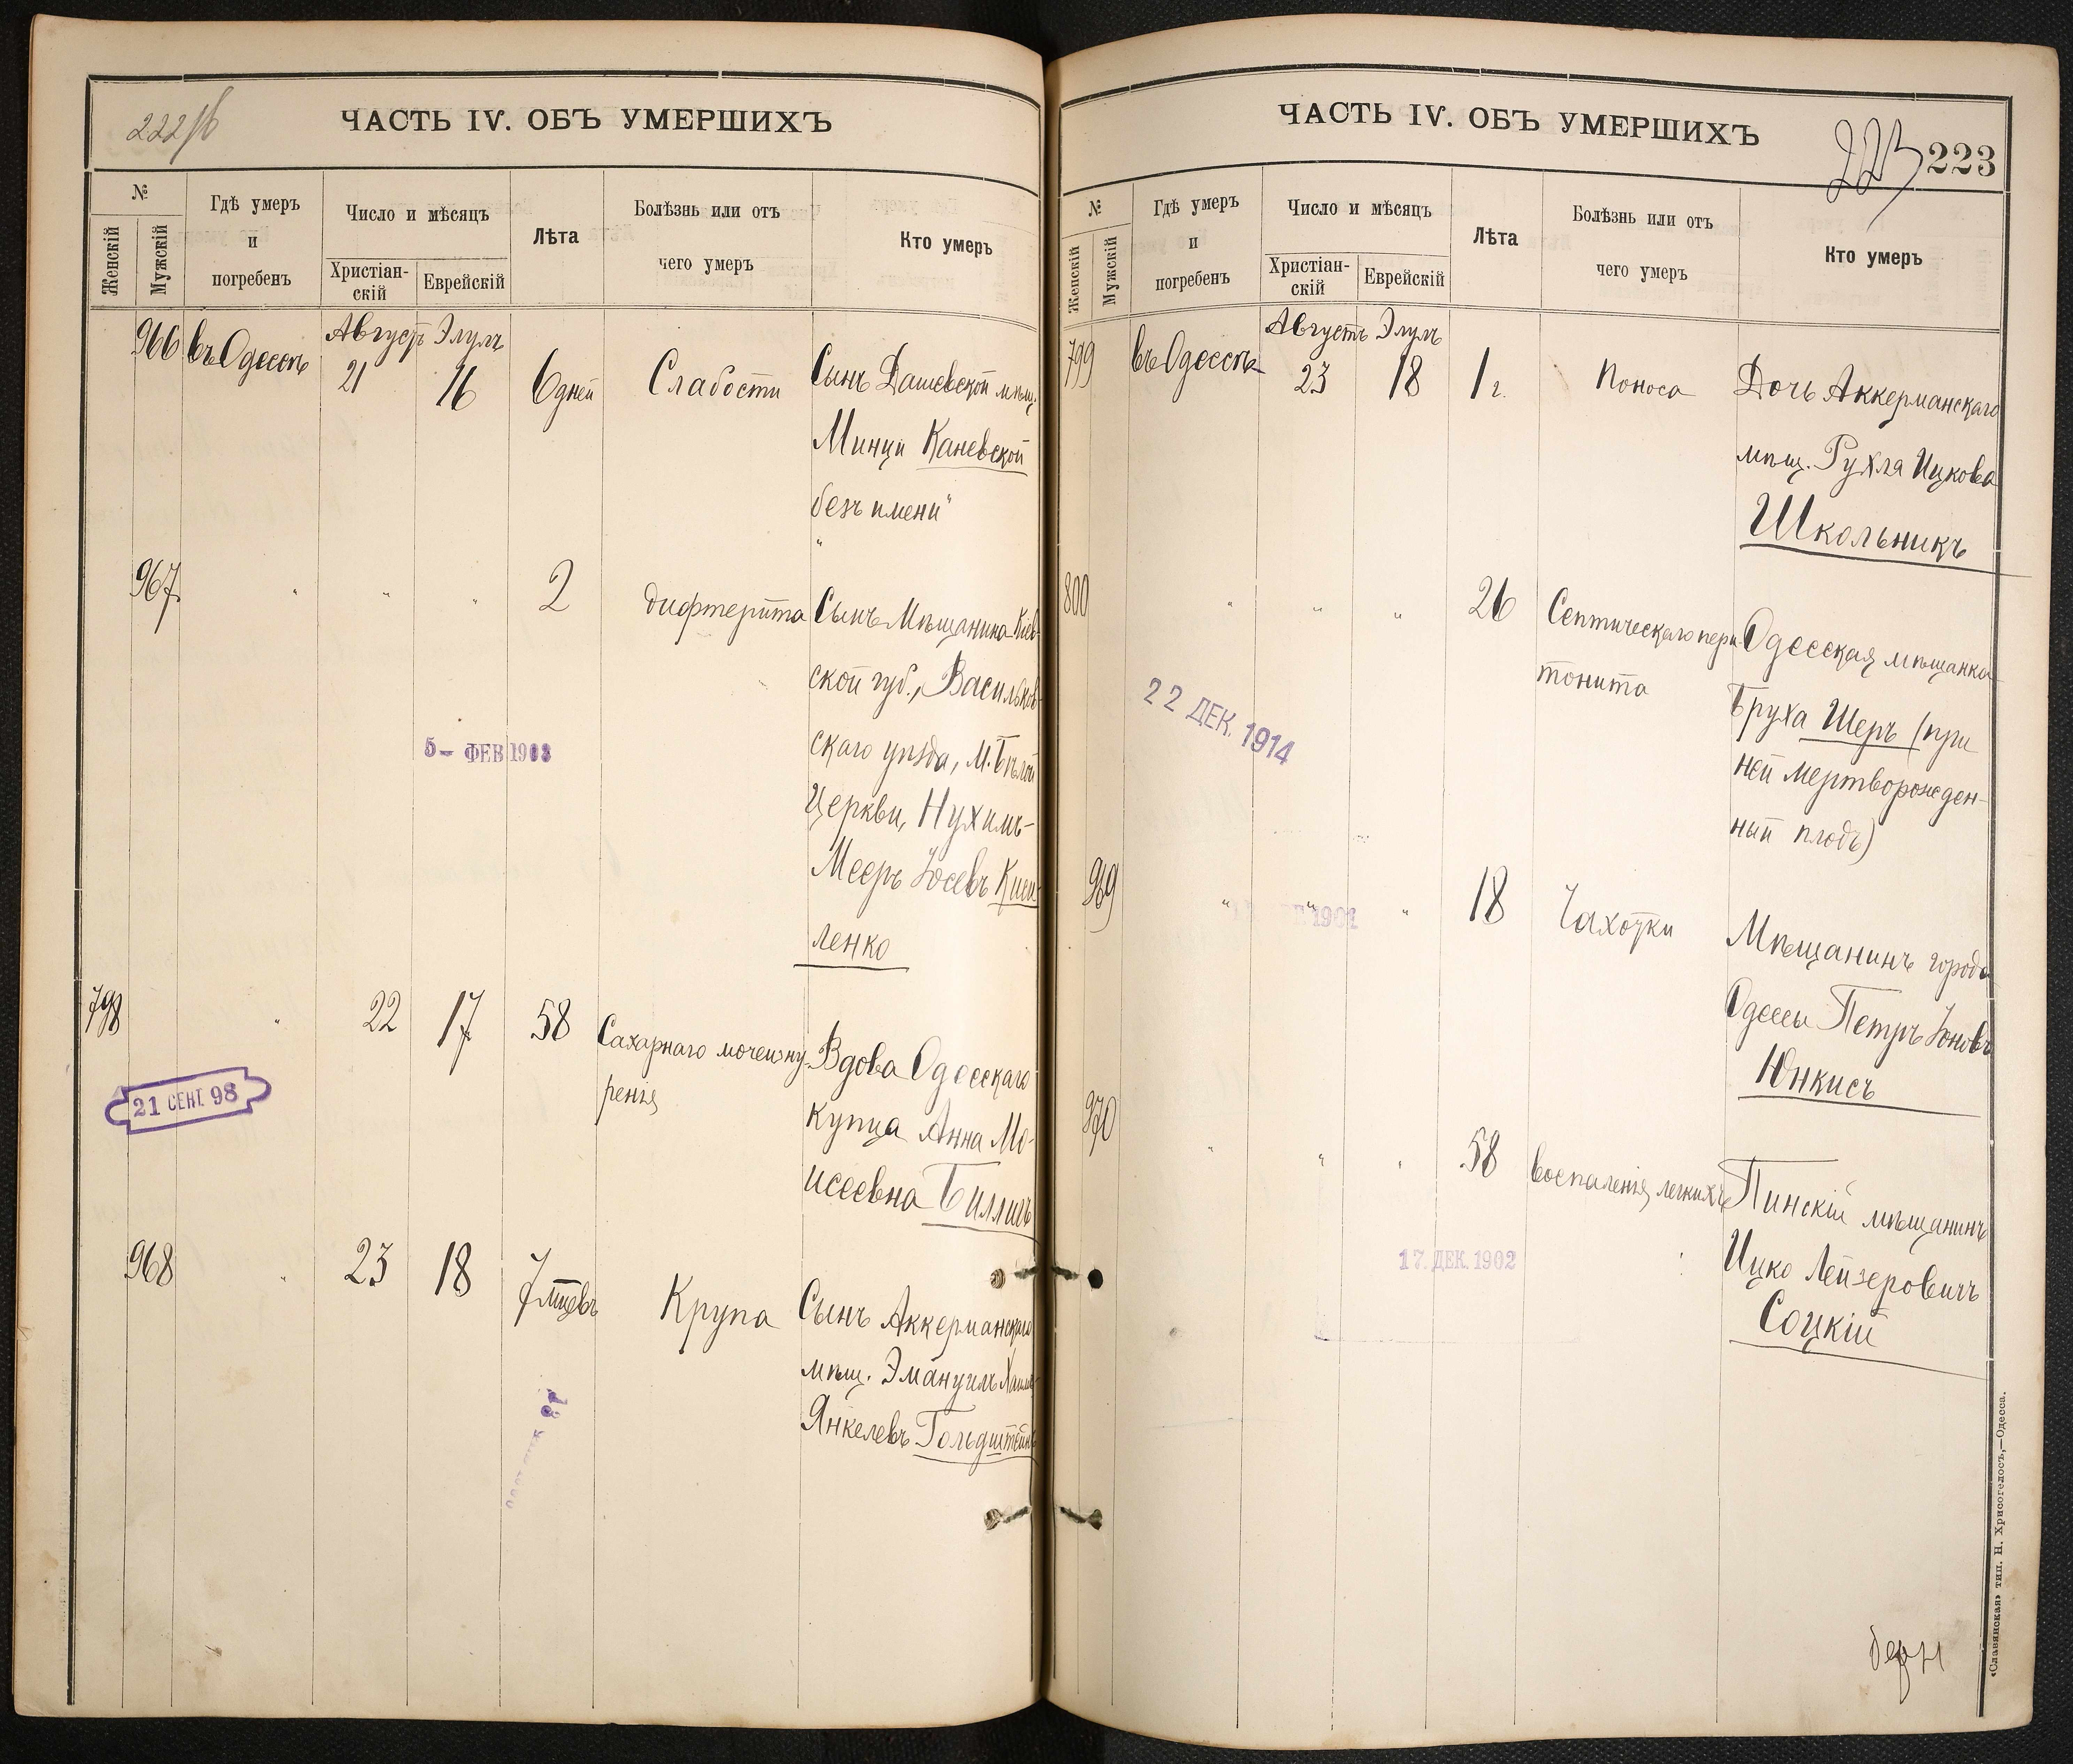 222 об
ЧАСТЬ IV. ОБЪ УМЕРШИХЪ
№
Женскій
Мужскій
Гдѣ умеръ
и
погребенъ
Число и мѣсяцъ
Христіан-
скій
Еврейскій
Лѣта
Болѣзнь или отъ
чего умеръ
Кто умеръ
966 въ Одессѣ Августъ 21 Элулъ 16 6 дней Слабости Сынъ Дашевской мѣщ.
Минци Каневской
безъ имени"
"
967 " " " 2 дифтерита Сынъ Мѣщанина Кіев-
ской губ., Васильков-
скаго уѣзда, М. Бѣлой
Церкви, Нухимъ-
Мееръ Іосевъ Киси-
ленко
5- ФЕВ 1903
798 " 22 17 58 Сахарнаго мочеизну- Вдова Одесскаго
ренія купца Анна Мо-
исеевна Биллигъ
21 СЕНТ. 98
968 " 23 18 7 мцевъ Крупа Сынъ Аккерманскаго
мѣщ. Эмануилъ Хаимъ-
Янкелевъ Гольдштейнъ
ЧАСТЬ IV. ОБЪ УМЕРШИХЪ
223
223
№
Женскій
Мужскій
Гдѣ умеръ
и
погребенъ
Число и мѣсяцъ
Христіан-
скій
Еврейскій
Лѣта
Болѣзнь или отъ
чего умеръ
Кто умеръ
799 въ Одессѣ Августъ 23 Элулъ 18 1 г. Поноса Дочь Аккерманскаго
мѣщ. Рухля Ицкова
Школьникъ
800 " " " 26 Септическаго пери- Одесская мѣщанка
тонита Бруха Шеръ (при
ней мертворожден-
ный плодъ)
22 ДЕК. 1914
969 " " " 18 Чахотки Мѣщанинъ города
Одессы Петръ Іоновъ
Юнкисъ
1901
970 " " " 58 Воспаленія легкихъ Пинскій мѣщанинъ
Ицко Лейзеровичъ
Соцкій
17. ДЕК. 1902
«Славянская» тип. Н. Хрисогелосъ,—Одесса.